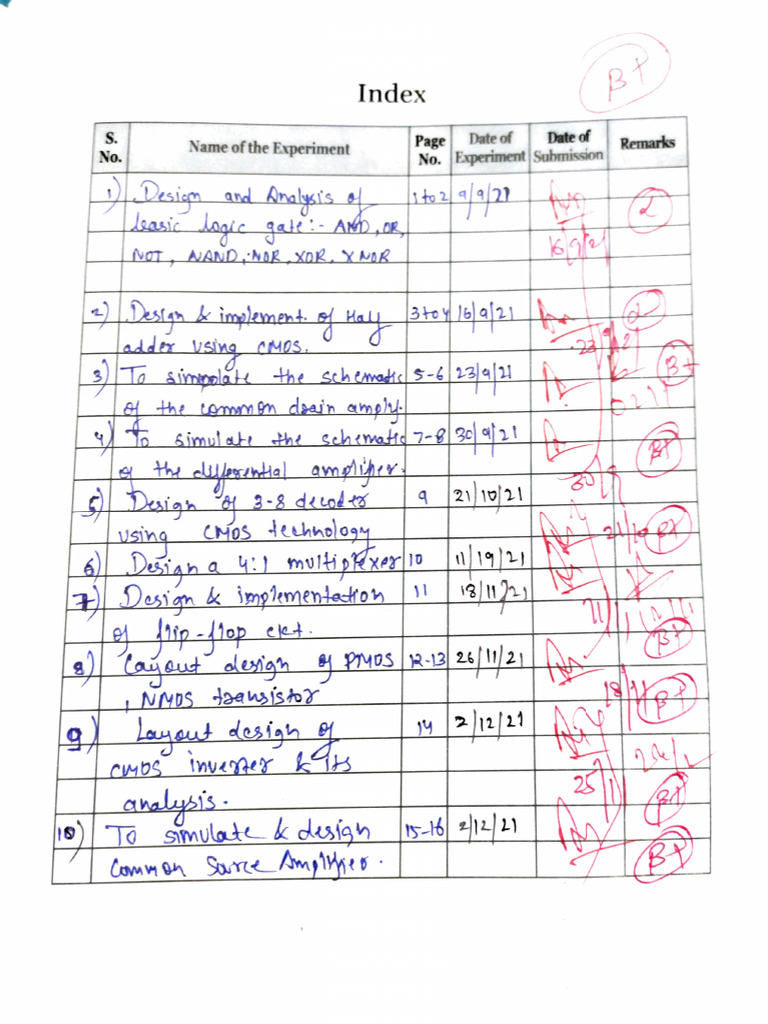 B+
Index
S. No. Name of the Experiment Page No. Date of Experiment Date of Submission Remarks
1) Design and Analysis of 1 to 2 9/9/21
basic logic gate:- AND, OR, 2
NOT, NAND, NOR, XOR, XNOR 16/9/21
2) Design & implement. of Half 3 to 4 16/9/21
adder using CMOS.
3) To simmolate the schematic 5-6 23/9/21 B+
of the common drain amply.
4) To simulate the schematic 7-8 30/9/21 B+
of the differential amplifier.
5) Design of 3-8 decoder 9 21/10/21
using CMOS technology 21/10 B+
6) Design a 4:1 multiplexer 10 11/19/21
7) Design & implementation 11 18/11/21
of flip-flop ckt. B+
8) Layout design of PMOS 12-13 26/11/21
, NMOS transistor B+
9) Layout design of 14 2/12/21
CMOS inverter & its
analysis. B+
10) To simulate & design 15-16 2/12/21
Common Sarce Amplifier. B+